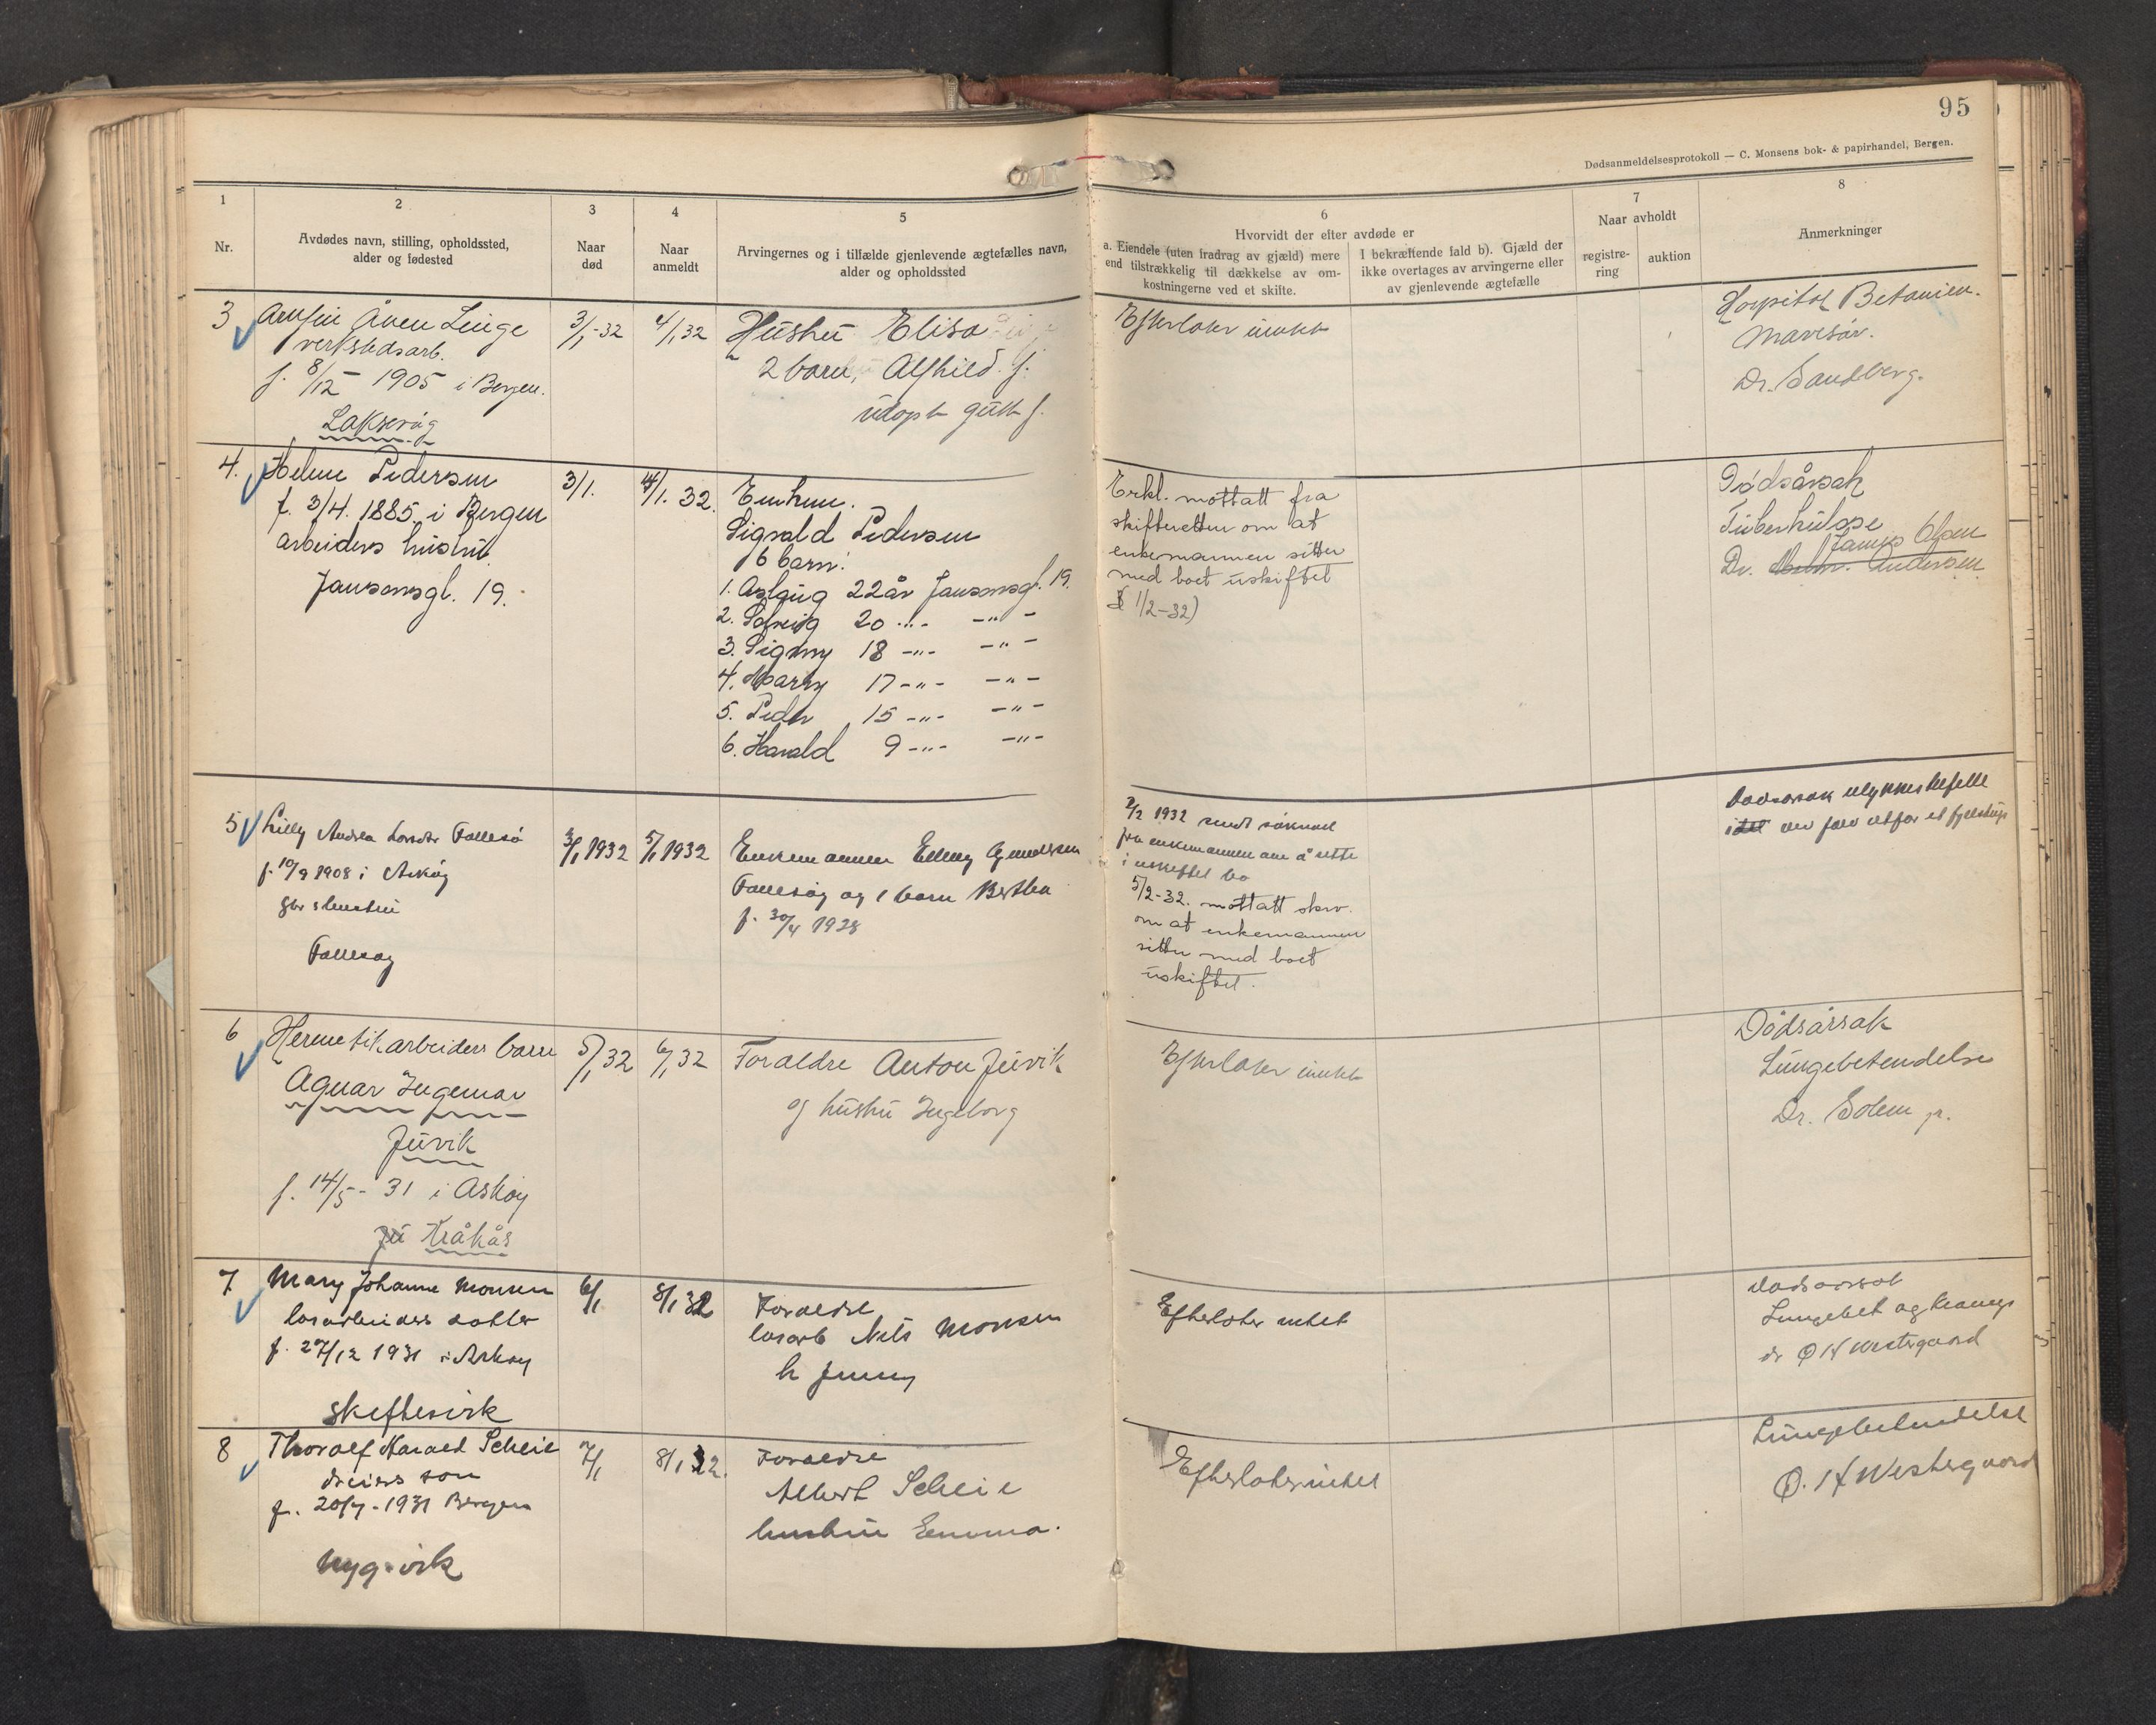 95
Dødsanmeldelsesprotokoll — C. Monsens bok- & papirhandel, Bergen.
1
Nr.
2
Avdødes navn, stilling, opholdssted,
alder og fødested
3
Naar
død
4
Naar
anmeldt
5
Arvingernes og i tilfælde gjenlevende ægtefælles navn,
alder og opholdssted
6
Hvorvidt der efter avdøde er
a. Eiendele (uten fradrag av gjæld) mere
end tilstrækkelig til dækkelse av om-
kostningerne ved et skifte.
I bekræftende fald b). Gjæld der
ikke overtages av arvingerne eller
av gjenlevende ægtefælle
7
Naar avholdt
registre-
ring
auktion
8
Anmerkninger
3
Arnfin Åven Linge
verkstedsarb.
f. 8/12 1905 i Bergen.
Laksevåg
3/1-32
4/1 32
Hustru Elisa
2 barn, Alfhild f.
udøpt gutt f.
Efterlater intet
Hospitat Betanien.
Dr. Sandberg.
4.
Helene Pedersen
f. 3/4. 1885 i Bergen
arbeiders hustru.
Jansonsgt. 19.
3/1.
4/1. 32.
Enkem.
Sigvald Pedersen
6 barn:
1. Aslaug 22 år Jansonsgt. 19.
2. Solveig 20 -"- -"-
3. Signny 18 -"- -"-
4. Marry 17 -"- -"-
5. Peder 15 -"- -"-
6. Harald 9 -"- -"-
Erkl. mottatt fra
skifteretten om at
enkemannen sitter
med boet uskiftet
1/2-32)
Dødsårsak
Tuberkulose
James Olsen
Dr. Andersen
5
Lilly Andrea Follesø
f. 10/9 1908 i Askøy
gbr s hustru
Follesøy
3/1 1932
5/1 1932
Enkemannen Elling Gundersen
Follesøy og 1 barn Bertha
f. 30/4 1928
2/2 1932 sendt søknad
fra enkemannen om å sitte
i uskiftet bo
5/2-32. mottatt skriv.
om at enkemannen
sitter med boet
uskiftet.
Dødsårsak ulykkestilfelle
idet den falt utfor et fjellstup
6
Hermetikarbeiders barn
Agnar Ingemar
Juvik
f. 14/5- 31 i Askøy
Kråkås
5/1 32
6/1 32
Foraldre Anton Juvik
og hustru Ingeborg
Efterlater intet
Dødsårsak
Lungebetendelse
Dr. Solem jr.
7
Mary Johanne Monsen
løsarbeiders datter
f. 27/12 1931 i Askøy
Skiftesvik
6/1
8/1 32
Foraldre
løsarb Nils Monsen
h Jenny
Efterlater intet
Dødsårsak
Lungebet og krampe
dr Ø H Westergaard
8
Thoralf Harald Scheie
dreiers søn
f. 20/7-1931 Bergen
Nygvik
7/1
8/1 32.
Foraldre
Albert Scheie
hustru Emma.
Efterlater intet
Lungebetendelse
Ø. H Westergaard